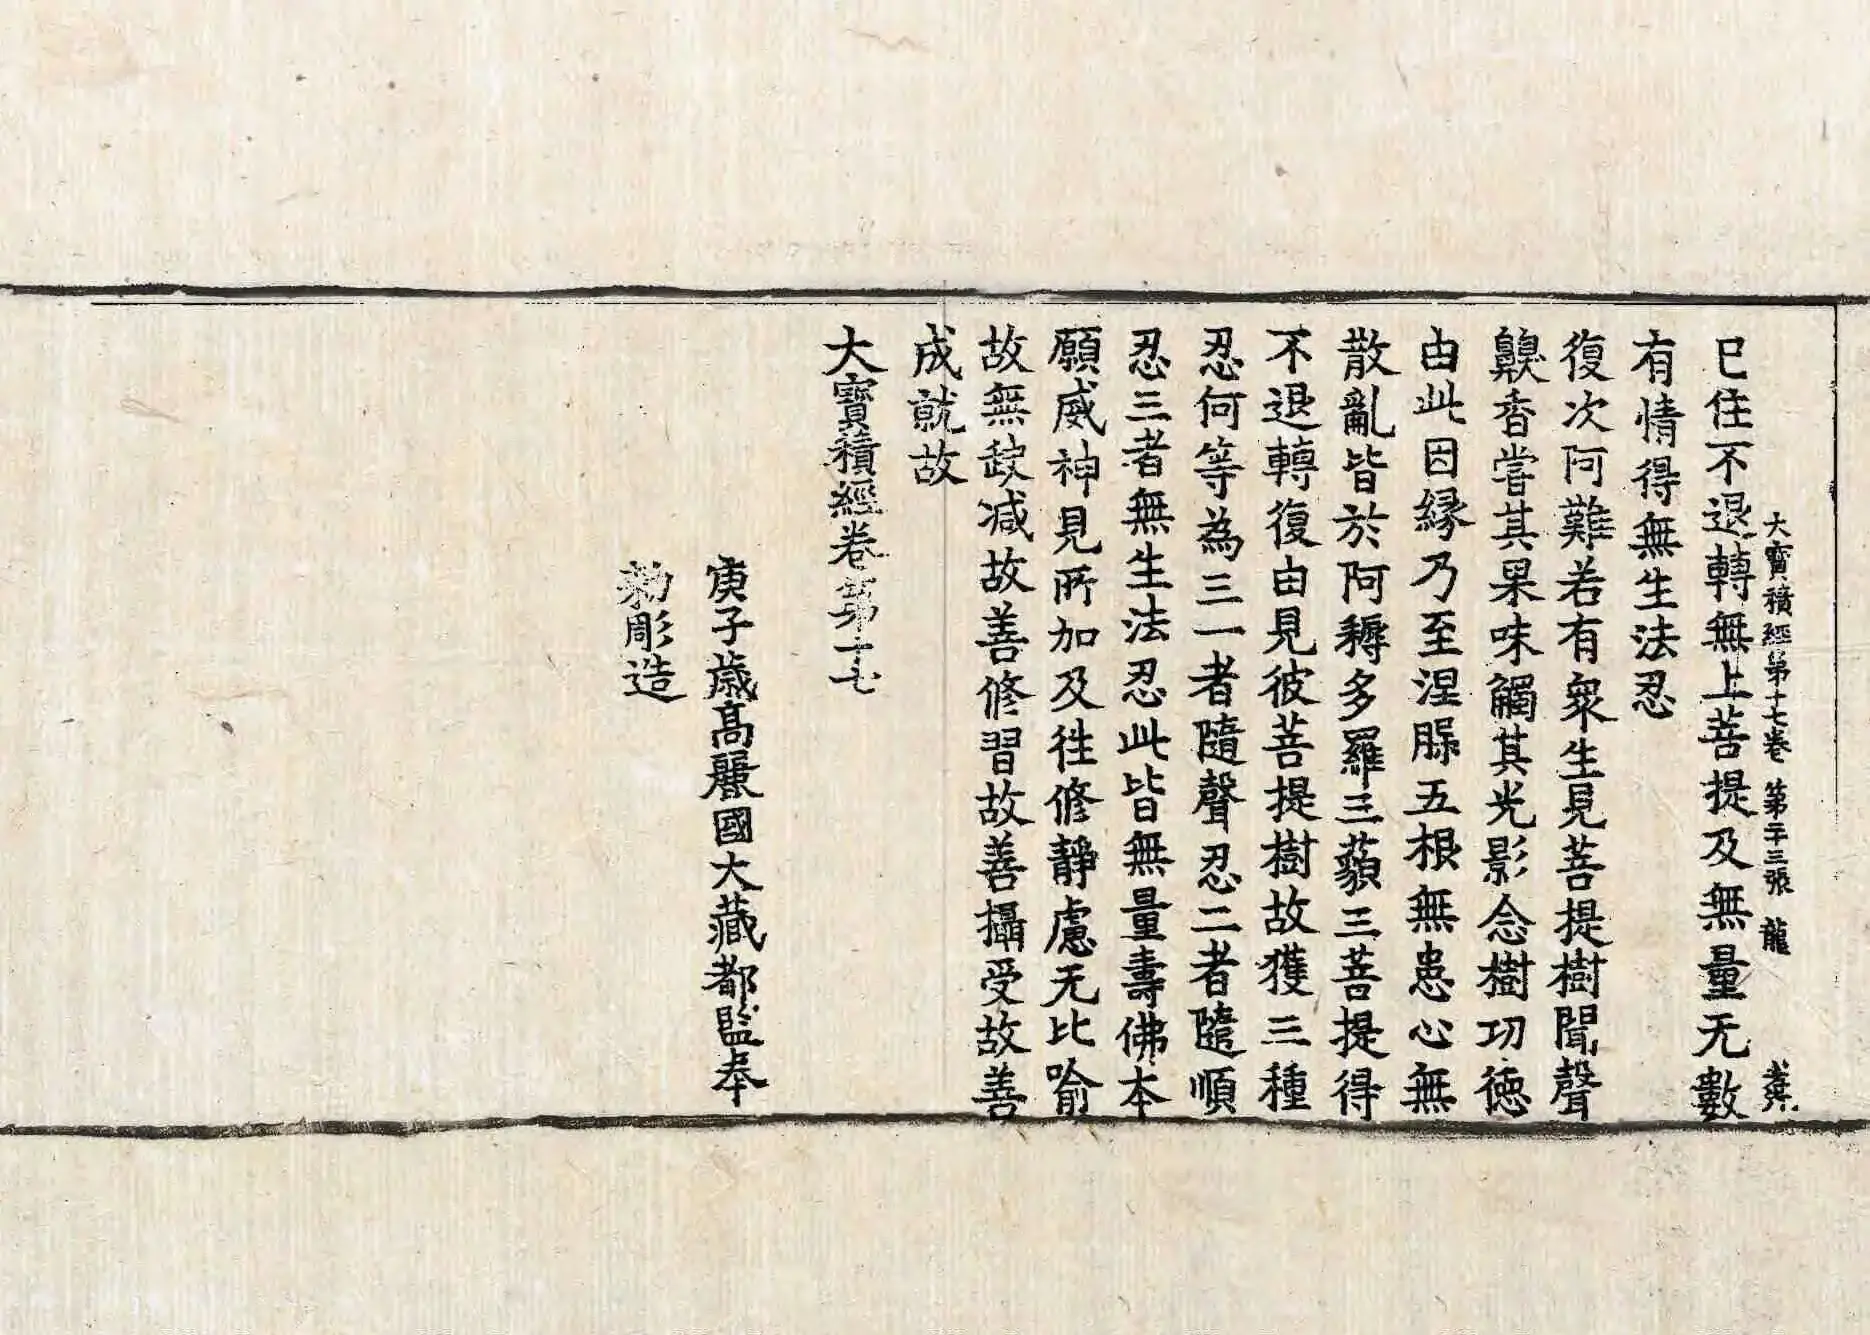 大寶積經第十七卷 第二十三張 龍
已住不退轉無上菩提及無量无數
有情得無生法忍
復次阿難若有衆生見菩提樹聞聲
齅香嘗其果味觸其光影念樹功徳
由此因縁乃至涅槃五根無患心無
散亂皆於阿耨多羅三藐三菩提得
不退轉復由見彼菩提樹故獲三種
忍何等為三一者隨聲忍二者隨順
忍三者無生法忍此皆無量壽佛本
願威神見所加及往修静慮无比喻
故無缺减故善修習故善攝受故善
成就故
大寶積經卷第十七
庚子歳髙麗國大藏都監奉
勑彫造